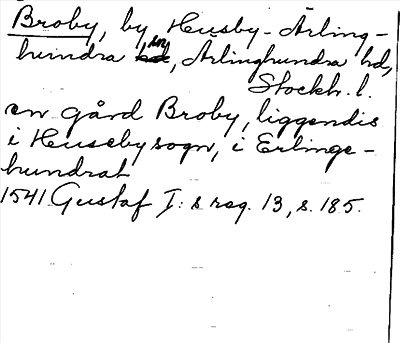 Broby, by Husby-Ärling-
hundra sn, Ärlinghundra hd,
Stockh. l.
en gård Broby, liggendis
i Husebysogn, i Erlinge-
hundrat
1541 Gustaf I:s reg. 13, s. 185.